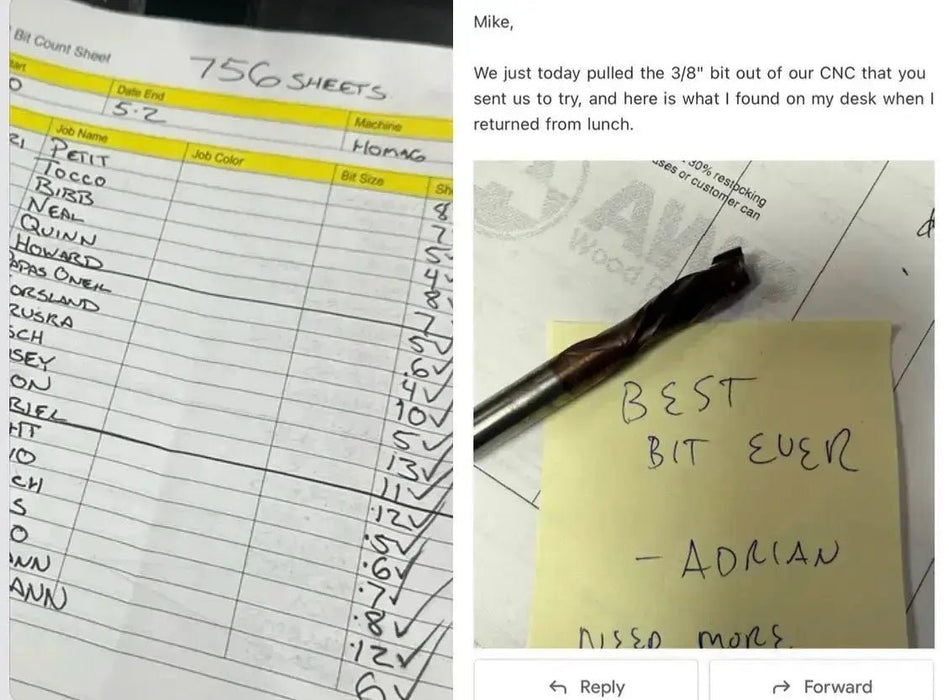 Bit Count Sheet
756 SHEETS
Date End
5.2
Machine
HOMAG
Job Name
Job Color
Bit Size
Sh
PETIT
8
TOCCO
7
BIBB
5
NEAL
4✓
QUINN
8✓
HOWARD
7
APAS ONEIL
5✓
ORSLAND
6✓
RUSRA
4✓
SCH
10✓
SEY
5✓
ON
13✓
RIEL
11✓
HT
12✓
IO
5✓
CH
6✓
S
7✓
O
8✓
NN
12✓
ANN
6✓
Mike,
We just today pulled the 3/8" bit out of our CNC that you
sent us to try, and here is what I found on my desk when I
returned from lunch.
30% restocking
ses or customer can
AW
Wood
BEST
BIT EVER
- ADRIAN
NEED MORE
Reply
Forward